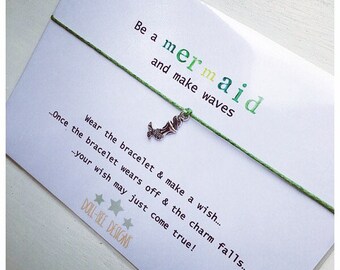 Be a
mermaid
and make waves
Wear the bracelet & make a wish..
..Once the bracelet wears off & the charm falls..
..your wish may just come true!
DOLL-ICE DESIGNS